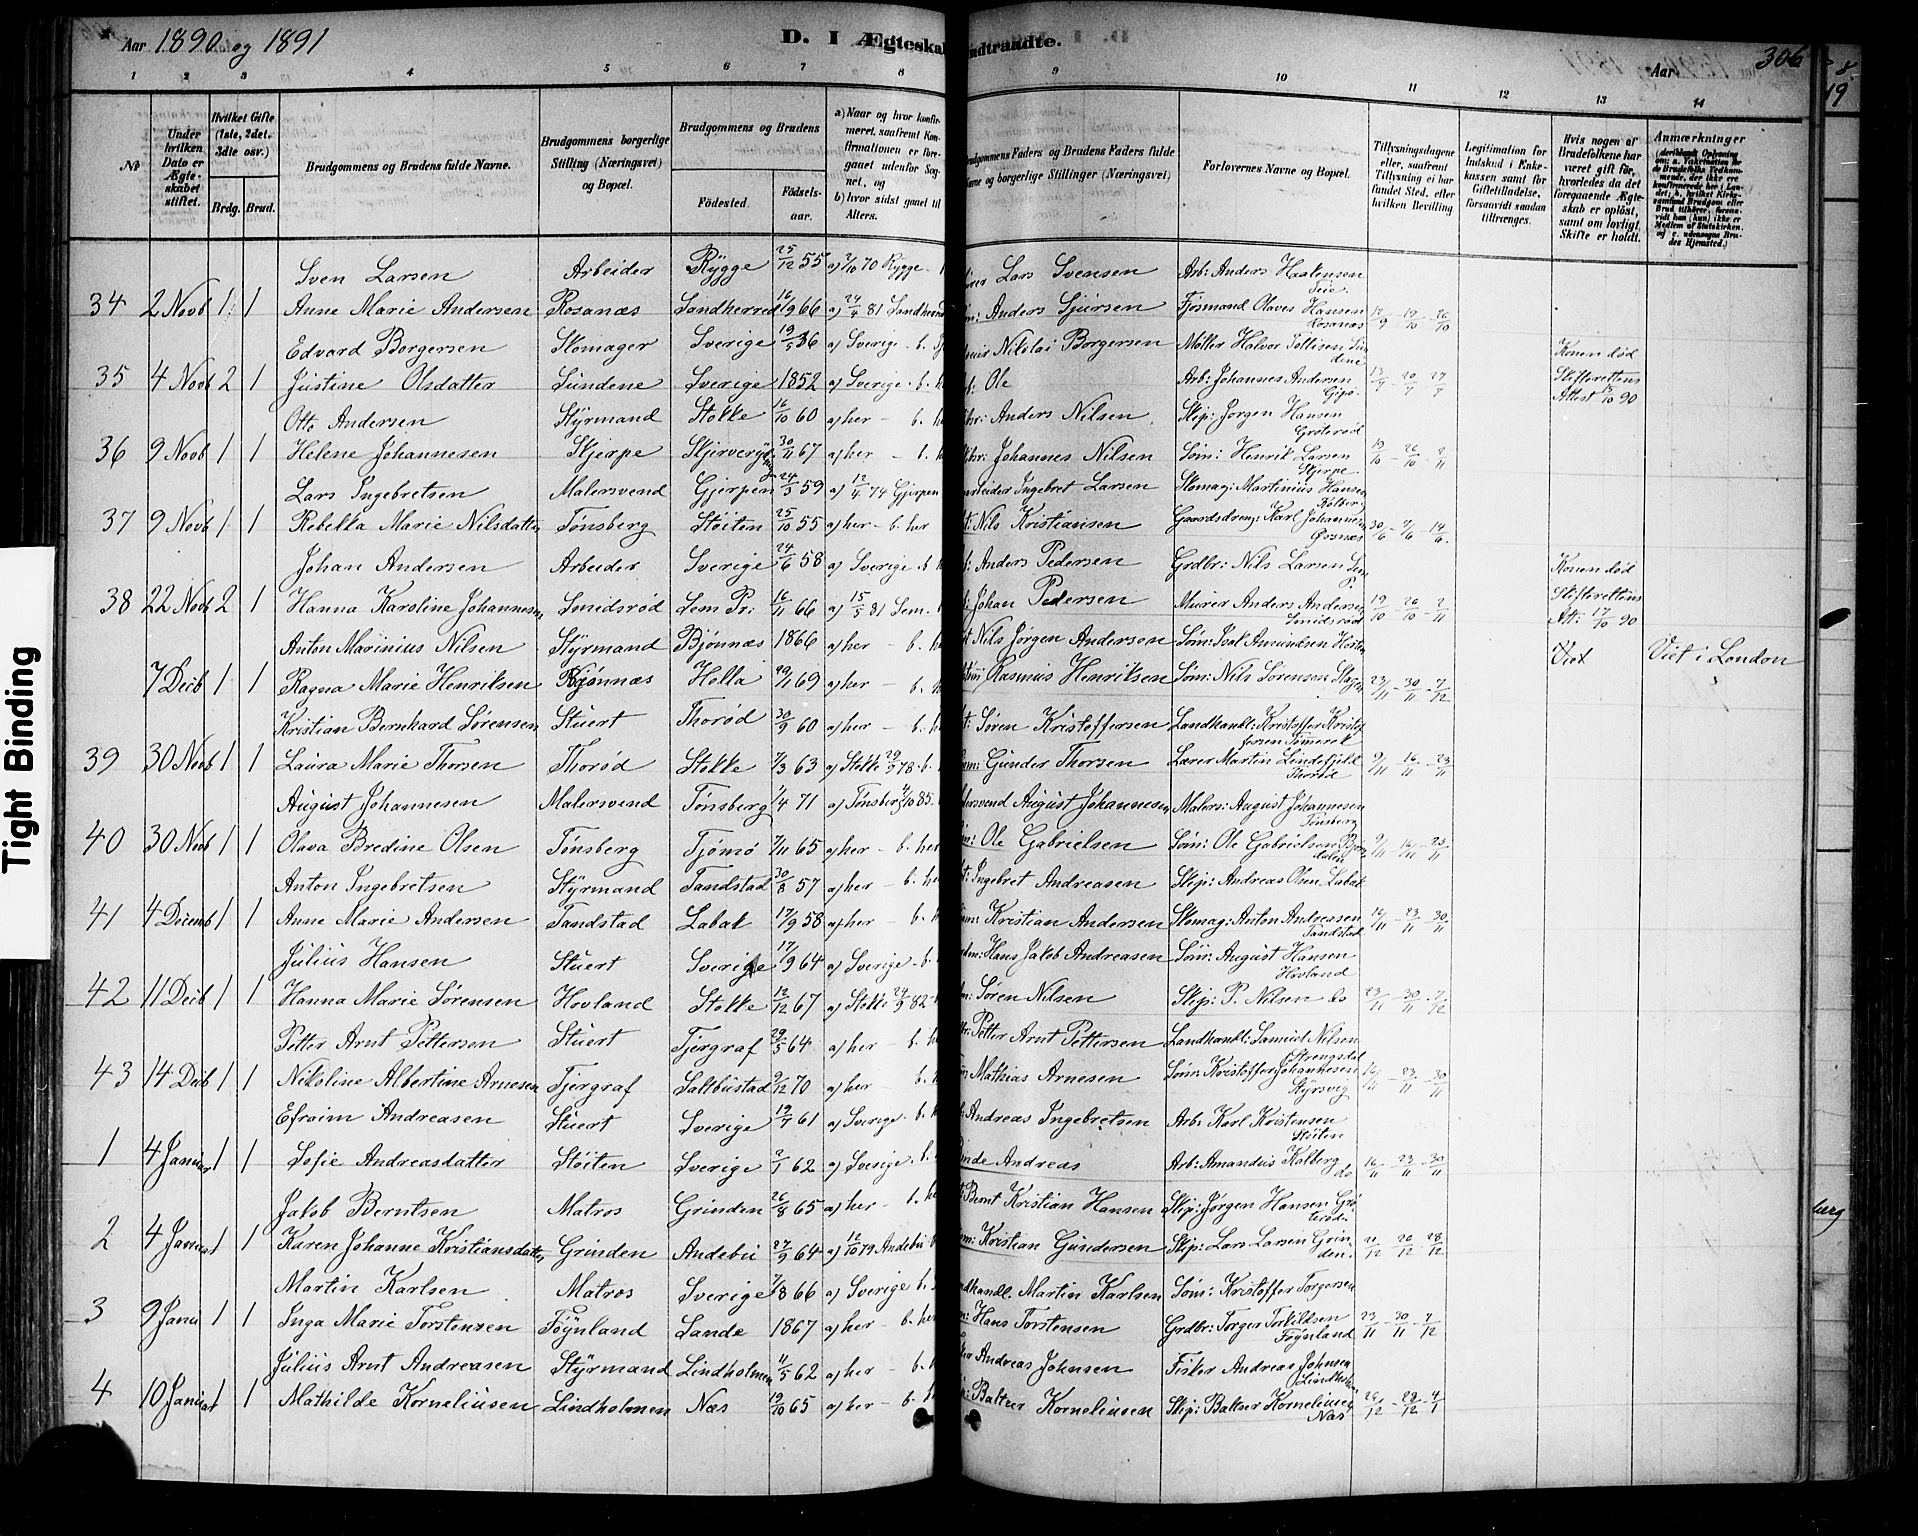 Aar 1890 og 1891
D. I Ægteskab Indtraadte.
Aar
306
1 2 3 4 5 6 7 8 9 10 11 12 13 14
No
Under hvilken Dato er Ægteskabet stiftet.
Hvilket Gifte (1ste, 2det, 3die osv.)
Brdg. Brud.
Brudgommens og Brudens fulde Navne.
Brudgommens borgerlige Stilling (Næringsvei) og Bopæl.
Brudgommens og Brudens
Födested.
Födselsaar.
a) Naar og hvor konfirmeret, saafremt Konfirmationen er foregaaet udenfor Sognet, og
b) hvor sidst gaaet til Alters.
Brudgommens Faders og Brudens Faders fulde Navne og borgerlige Stillinger (Næringsvei)
Forlovernes Navne og Bopæl.
Tillysningsdagene eller, saafremt Tillysning ei har fundet Sted, efter hvilken Bevilling
Legitimation for Indskud i Enkekassen samt for Giftetilladelse, forsaavidt saadan tiltrænges.
Hvis nogen af Brudefolkene har været gift för, hvorledes da det foregaaende Ægteskab er oplöst, samt om lovligt Skifte er holdt.
Anmærkninger
Sven Larsen Arbeider Rygge 25/12 55 a) 2/10 70 Rygge Lars Svensen Arb: Anders Haakensen Teie
34 2 Novb 1 1 Anne Marie Andersen Rosanæs Sandherred 16/9 66 a) 24/4 81 Sandherred Anders Sjursen Fjøsmand Olaves Hansen Rosanæs 12/9 19/10 26/10
Edvard Borgersen Skomager Sverige 19/5 36 a) Sverige - b. Nikolai Borgersen Møller Halvor Tollisen Sundene Konen død
35 4 Novb 2 1 Justine Olsdatter Sundene Sverige 1852 a) Sverige - b. Ole Arb: Johannes Andersen Gipø 13/9 20/9 27/9 Skifterettens Attest 15/10 90
Otto Andersen Styrmand Stokke 16/10 60 a) her - b. Anders Nilsen Skip: Jørgen Hansen Grøterød
36 9 Novb 1 1 Helene Johannesen Skjerpe 30/11 67 a) her - b. Johannes Nilsen Søm: Henrik Larsen Skjerpe 19/10 26/10 2/11
Lars Ingebretsen Malersvend Gjerpen 24/3 59 a) 12/4 74 Gjerpen Ingebret Larsen Skomag: Martinius Hansen Kolberg
37 9 Novb 1 1 Rebekka Marie Nilsdatter Tønsberg Støiten 25/10 55 a) her - b. her Nils Kristiansen Gaardsdreng: Karl Johannesen Ørsnæs 30/6 7/6 14/6
Johan Andersen Arbeider Sverige 24/6 58 a) Sverige b. Anders Pedersen Grdbr: Nils Larsen Sem P. Konen død
38 22 Novb 2 1 Hanna Karoline Johannesen Smidsrød Sem Pr: 16/11 66 a) 15/5 81 Sem. Johan Pedersen Murer Anders Andersen Smidsrød 19/10 26/10 2/11 Skifterettens Att: 17/10 90
Anton Marinius Nilsen Styrmand Bjønnæs 1866 a) her - b. Nils Jørgen Andersen Søm: Isak Amundsen Viet Viet i London
7 Decb 1 1 Ragna Marie Henriksen Bjønnæs Holla 69 a) her - b. Rasmus Henriksen Søm: Nils Sørensen Slagen 23/11 30/11 7/12
Kristian Bernhard Sørensen Stuert Thorød 30/9 60 a) her - b. Søren Kristoffersen Landhandl: Kristoffer Kristoffersen
39 30 Novb 1 1 Laura Marie Thorsen Thorød Stokke 7/3 63 a) Stokke 29/9 78 - b. Gunder Thorsen Lærer Martin Lindefjeld Thorød 9/11 16/11 23/11
August Johannesen Malersvend Tønsberg 1/4 71 a) Tønsberg 4/10 85. August Johannesen Malers: August Johannesen Tønsberg
40 30 Novb 1 1 Olava Bredine Olsen Tønsberg Tjømø 7/11 65 a) her - b. her Ole Gabrielsen Søm: Ole Gabrielsen 9/11 16/11 23/11
Anton Ingebretsen Styrmand Tandstad 30/8 57 a) her - b. her Ingebret Andreasen Skip: Andreas Olsen Labak
41 4 Decemb 1 1 Anne Marie Andersen Tandstad Labak 17/9 58 a) her - b. Kristian Andersen Skomag: Anton Andreasen Tandstad 16/11 23/11 30/11
Julius Hansen Stuert Sverige 17/9 64 a) Sverige - b. Hans Jakob Andreasen Søm: August Hansen Hovland
42 11 Decb 1 1 Hanna Marie Sørensen Hovland Stokke 12/12 67 a) Stokke 24/9 82 Søren Nilsen Skip: P. Nilsen do 23/11 30/11 7/12
Petter Arnt Pettersen Stuert Tjergraf 29/5 64 a) her - b. Petter Arnt Pettersen Landhandl: Samuel Nilsen
43 14 Decb 1 1 Nikoline Albertine Arnesen Tjergraf Saltbustad 9/12 70 a) her - b. Mathias Arnesen Søm: Kristoffer Johannesen Styrsvig 16/11 23/11 30/11
Efraim Andreasen Stuert Sverige 61 a) Sverige. b. Andreas Ingebretsen Arb: Karl Kristensen Støiten
1 4 Januar 1 1 Sofie Andreasdatter Støiten Sverige 2/1 62 a) Sverige. b. Andreas Arb: Amandus Kolberg do 16/11 23/11 30/11
Jakob Berntsen Matros Grinden 26/8 65 a) her - b. Bernt Kristian Hansen Skip: Jørgen Hansen Grøterød
2 4 Januar 1 1 Karen Johanne Kristiansdatter Grinden Andebu 27/9 64 a) 12/10 79 Andebu Kristian Gundersen Skip: Lars Larsen Grinden. 21/12 26/12 28/12
Martin Karlsen Matros Sverige 7/8 66 a) Sverige b. Martin Karlsen Søm: Kristoffer Torgersen
3 9 Janu 1 1 Inga Marie Torstensen Føynland Sande 1867 a) her - b. her Hans Torstensen Grdbr: Torger Torkildsen Føynland 23/11 30/11 7/12
Julius Arnt Andreasen Styrmand Lindholmen 11/5 62 a) her - b. Andreas Johnsen Fisker Andreas Johnsen Lindholmen
4 10 Januar 1 1 Mathilde Korneliusen Lindholmen Næs 19/10 65 a) her - b. her Baltser Korneliusen Skip: Baltser Korneliusen Næs 26/12 28/12 4/1
Tight Binding